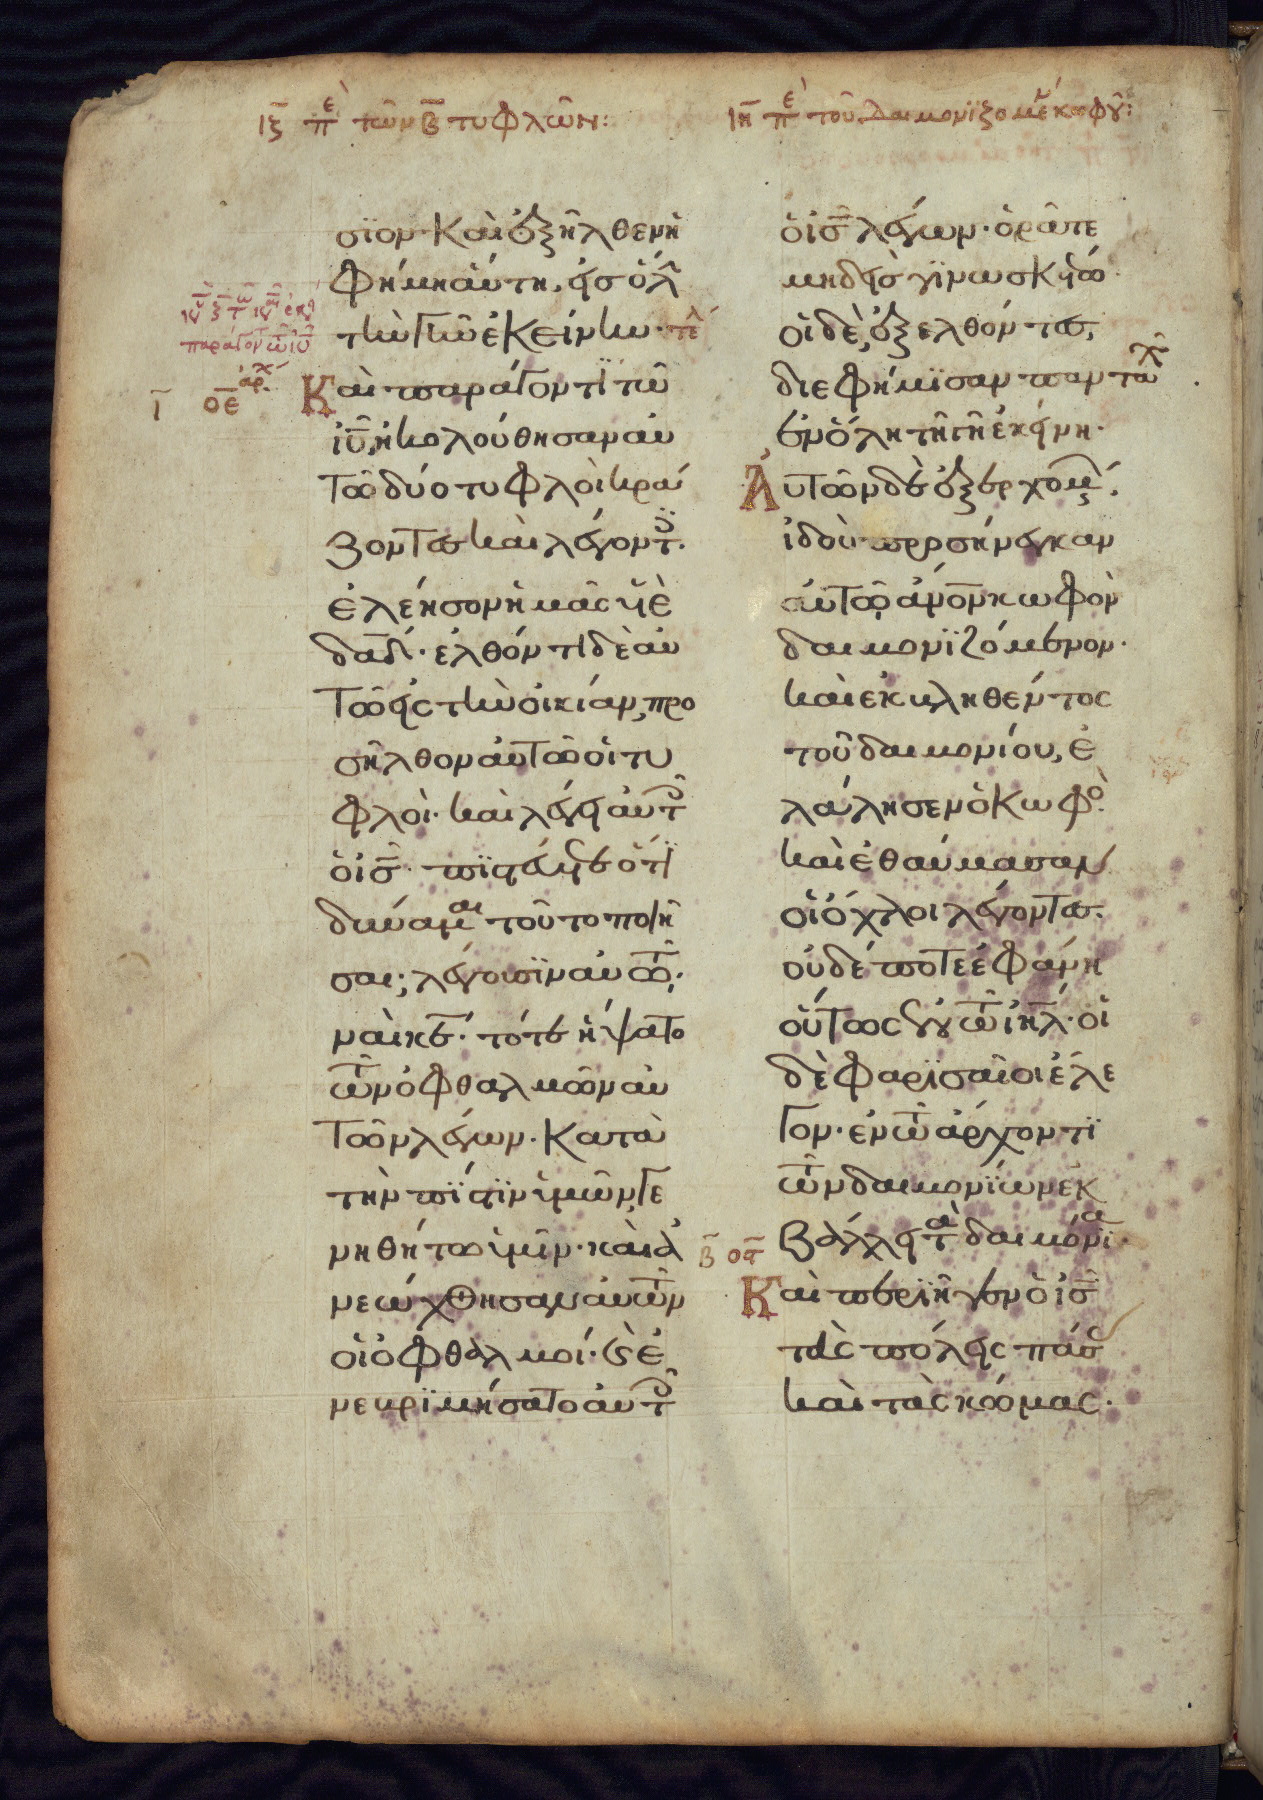 ιζ πε τῶν β τυφλῶν:
ιη πε τοῦ δαιμονιζομέ κωφοῦ:
σϊον· καὶ ἐξῆλθεν ἡ
φήμη αὕτη, εἰς ὅλ
τὴν γῆν ἐκείνην· τέ
Καὶ παράγοντϊ τῶ
ἰυ, ἠκολούθησαν αὐ
τῶ δύο τυφλοὶ κρά
ζοντες καὶ λέγοντ·
ἐλέησον ἡμᾶς υἱὲ
δαδ· ἐλθόντι δὲ αὐ
τῶ εἰς τὴν οἰκίαν, προ
σῆλθον αὐτῶ οἱ τυ
φλοὶ· καὶ λέγει αὐτ
ὁ ις· πϊστεύετε ὅτϊ
δύναμαι τοῦτο ποιῆ
σαι; λέγουσϊν αὐτῶ·
ναὶ κε· τότε ἥψατο
τῶν ὀφθαλμῶν αὐ
τῶν λέγων· κατὰ
τὴν πίστϊν ὑμῶν γε
νηθήτω ὑμῖν· καὶ ἀ
νεώχθησαν αὐτῶν
οἱ ὀφθαλμοί· καὶ ἐ
νεβριμήσατο αὐτ
ι οε
ὁ ις λέγων· ὁρᾶτε
μηδεὶς γϊνωσκέτω·
οἱ δὲ, ἐξελθόντες,
διεφήμϊσαν πανταχ
ἐν ὅλη τῆ γῆ ἐκείνη·
Αὐτῶν δὲ ἐξερχομ,
ἰδοὺ προσήνεγκαν
αὐτῶ, ἄνον κωφὸν
δαιμονϊζόμενον·
καὶ ἐκβληθέντος
τοῦ δαιμονίου, ἐ
λάλησεν ὁ κωφὸ·
καὶ ἐθαύμασαν
οἱ ὄχλοι λέγοντες·
οὐδέποτε ἐφάνη
οὕτως ἐν τῶ ιηλ· οἱ
δὲ φαρϊσαῖοι ἔλε
γον· ἐν τῶ ἄρχοντϊ
τῶν δαιμονϊων ἐκ
βάλλει τὰ δαιμόνϊα·
β ος
Καὶ περϊῆγεν ὁ ις
τὰς πόλεις πάσ
καὶ τὰς κώμας·